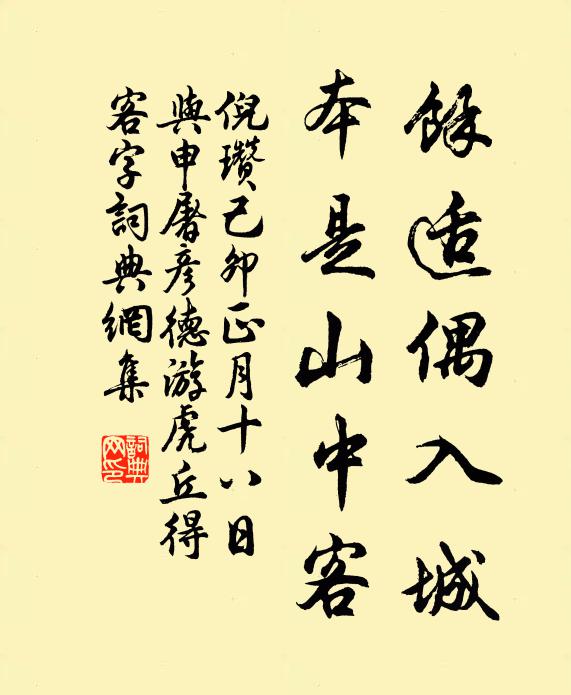 餘适偶入城
本是山中客
倪瓚己卯正月十八日
與申屠彥德游虎丘得
客字詞典網集
詞典网印